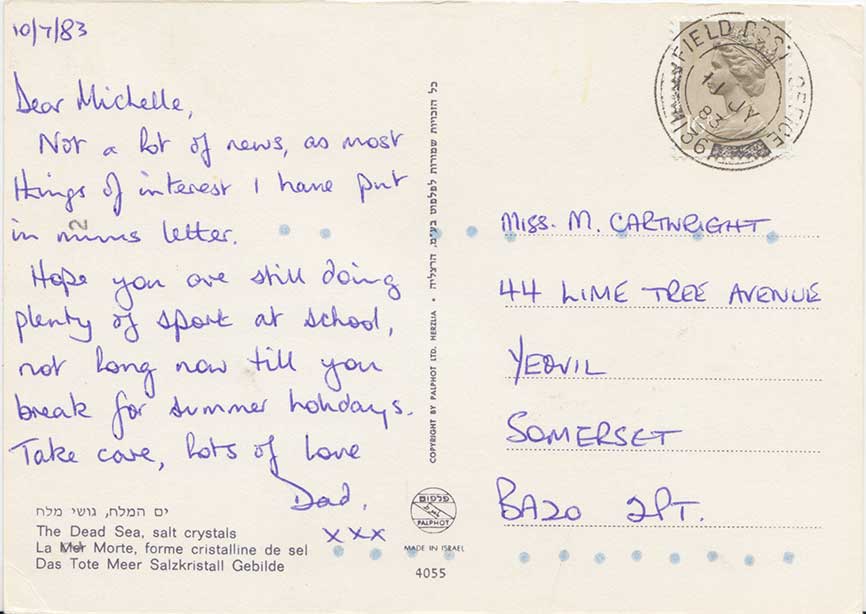 10/7/83
Dear Michelle,
Not a lot of news, as most
things of interest I have put
in mums letter.
Hope you are still doing
plenty of sport at school,
not long now till you
break for summer holidays.
Take care, lots of love
Dad.
xxx
ים המלח, גושי מלח
The Dead Sea, salt crystals
La Mer Morte, forme cristalline de sel
Das Tote Meer Salzkristall Gebilde
כל הזכויות שמורות לפלפוט בע"מ. הרצליה • COPYRIGHT BY PALPHOT LTD. HERZLIA
פלפוט
PALPHOT
MADE IN ISRAEL
4055
FIELD POST OFFICE
11 JY
83
136
MISS. M. CARTWRIGHT
44 LIME TREE AVENUE
YEOVIL
SOMERSET
BA20 2PT.